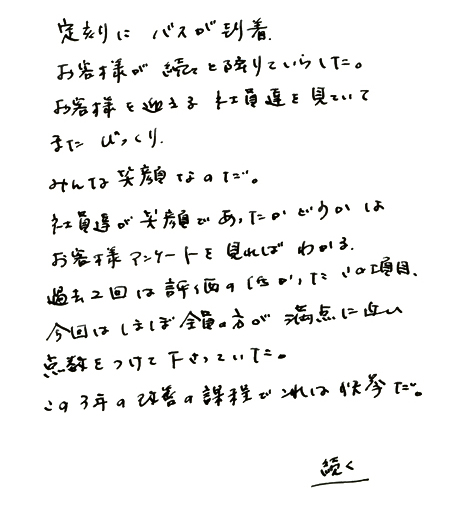 定刻に バスが到着.
お客様が 続々と降りていらした。
お客様を迎える 社員達を見ていて
またびっくり.
みんな笑顔なのだ。
社員達が笑顔であったかどうかは
お客様アンケートを見ればわかる.
過去2回は評価の低かったこの項目.
今回はほぼ全員の方が 満点に近い
点数をつけて下さっていた。
この3年の改善の課程でこれは快挙だ。
続く